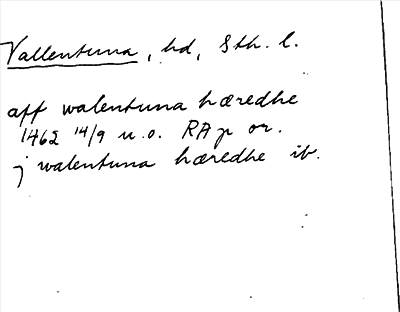 Vallentuna, hd, Sth. l.
aff walentuna hæredhe
1462 14/9 u.o. RAp or.
j walentuna hæredhe ib.